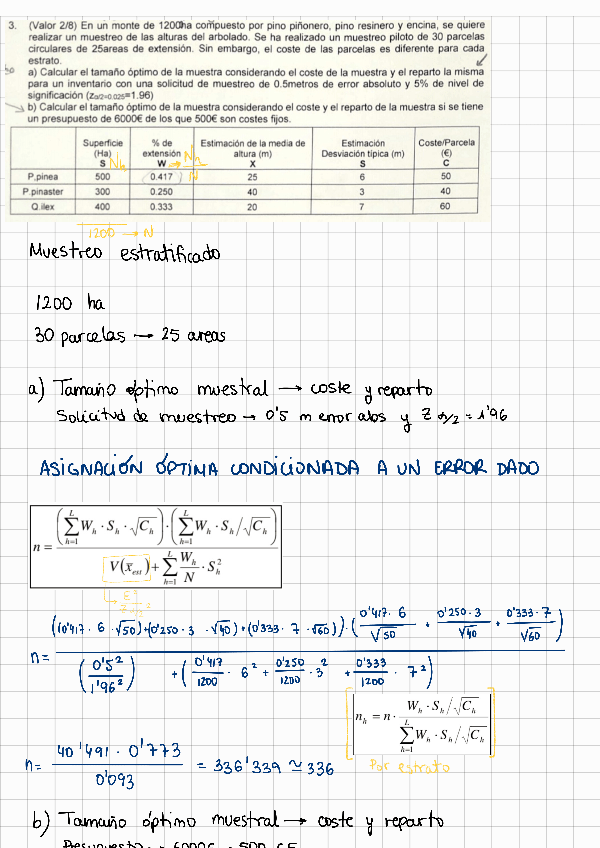 3. (Valor 2/8) En un monte de 1200ha compuesto por pino piñonero, pino resinero y encina, se quiere
realizar un muestreo de las alturas del arbolado. Se ha realizado un muestreo piloto de 30 parcelas
circulares de 25areas de extensión. Sin embargo, el coste de las parcelas es diferente para cada
estrato.
a) Calcular el tamaño óptimo de la muestra considerando el coste de la muestra y el reparto la misma
para un inventario con una solicitud de muestreo de 0.5metros de error absoluto y 5% de nivel de
significación (zα/2=0.025=1.96)
b) Calcular el tamaño óptimo de la muestra considerando el coste y el reparto de la muestra si se tiene
un presupuesto de 6000€ de los que 500€ son costes fijos.
Superficie (Ha) S Nh | % de extensión W → Nh/N | Estimación de la media de altura (m) X | Estimación Desviación típica (m) S | Coste/Parcela (€) C
P.pinea 500 0.417 25 6 50
P.pinaster 300 0.250 40 3 40
Q.ilex 400 0.333 20 7 60
1200 → N
Muestreo estratificado
1200 ha
30 parcelas → 25 areas
a) Tamaño óptimo muestral → coste y reparto
Solicitud de muestreo → 0'5 m error abs y Z α/2 = 1'96
ASIGNACIÓN ÓPTIMA CONDICIONADA A UN ERROR DADO
n = (∑_{h=1}^{L} W_h · S_h · √C_h) · (∑_{h=1}^{L} W_h · S_h/√C_h) / (V(x̄_est) + ∑_{h=1}^{L} W_h/N · S_h²)
↳ E²/Zα/2²
n = ((0'417 · 6 · √50)+(0'250 · 3 · √40)+(0'333 · 7 · √60)) · (0'417 · 6/√50 + 0'250 · 3/√40 + 0'333 · 7/√60) / ((0'5²/1'96²) + (0'417/1200 · 6² + 0'250/1200 · 3² + 0'333/1200 · 7²))
n_h = n · (W_h · S_h/√C_h) / (∑_{h=1}^{L} W_h · S_h/√C_h)
Por estrato
n = 40'491 · 0'773 / 0'093 = 336'339 ≃ 336
b) Tamaño óptimo muestral → coste y reparto